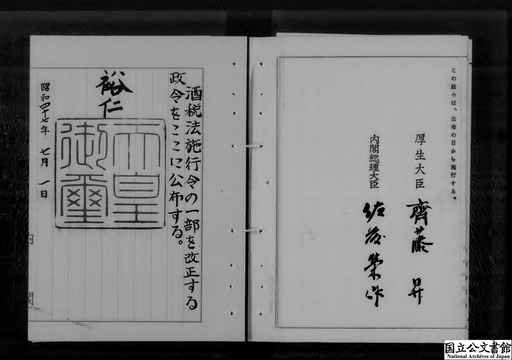 この政令は、公布の日から施行する。
厚生大臣 齊藤昇
内閣総理大臣 佐藤榮作
酒税法施行令の一部を改正する
政令をここに公布する。
裕仁
天皇
御璽
昭和四十七年 七月 一日
内閣
国立公文書館
National Archives of Japan